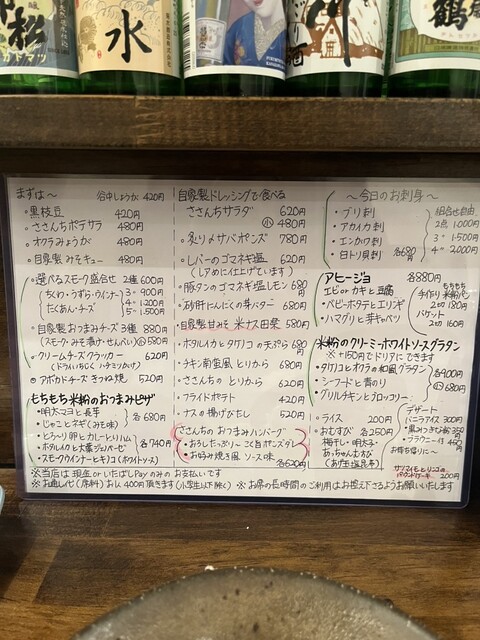 松
カドマツ
水
酒
鶴
まずは〜
谷中しょうが 420円
・黒枝豆 420円
・ささんちポテサラ 480円
・オクラみょうが 480円
・自家製 みそキュー 480円
・選べるスモーク盛合せ 2種 600円
ちくわ・うずら・ウインナー 3〃 900円
たくあん・チーズ 4〃 1200円
5〃 1500円
・自家製おつまみチーズ 3種 880円
(スモーク・みそ漬け・せんべい) 580円
・クリームチーズクラッカー 620円
(ドライいちじく ハチミツかけ)
・アボカドチーズ きつね焼 520円
もちもち米粉のおつまみピザ
・明太マヨと長芋
・じゃことネギ(みそ味)
各680円
・とろ〜り卵とカレーとりハム
・ホタルイカと大葉ジェノベーゼ
・スモークウインナーとキノコ(ホワイトソース)
各740円
自家製ドレッシングで食べる
ささんちサラダ 620円
小 480円
・炙り〆サバポンズ 780円
・レバーのゴマネギ塩 620円
(レアめに仕上げています)
・豚タンのゴマネギ塩レモン 680円
・砂肝にんにくの芽バター 680円
・自家製甘みそ 米ナス田楽 580円
・ホタルイカとタケノコの天ぷら 680円
・チキン南蛮風 とりから 680円
・ささんちの とりから 620円
・フライドポテト 420円
・ナスの揚げびたし 520円
ささんちのおつまみハンバーグ
・おろしたっぷり〜
・お好み焼き風 ソース味
各620円
〜今日のお刺身〜
・ブリ刺
・アカイカ刺
・エンガワ刺
・日トリ貝刺
各680円
組合せ自由
2点 1,000円
3〃 1,500円
4〃 2,000円
アヒージョ 各880円
・エビorカキと豆腐
・ベビーポタテとエリンギ
・ハマグリと芽キャベツ
もちもち
手作り米粉パン
2切 180円
バゲット
2切 160円
米粉のクリーミーホワイトソースグラタン
※+150円でドリアにできます
・タケノコとオクラの和風グラタン
・シーフードと青のり
・グリルチキンとブロッコリー
小 680円
・ライス 200円
・おむすび 各250円
梅干し・明太子・
あっちゃんむすび
(あげ玉塩昆布)
デザート
バニラアイス 300円
お持ち帰りに〜
サツマイモとリンゴの
パウンドケーキ 200円
※当店は現金orいたばしPayのみのお支払いです
※お通し代(席料)お1人400円頂きます(小学生以下除く) ※お席の長時間のご利用はお控え下さるようお願いいたします